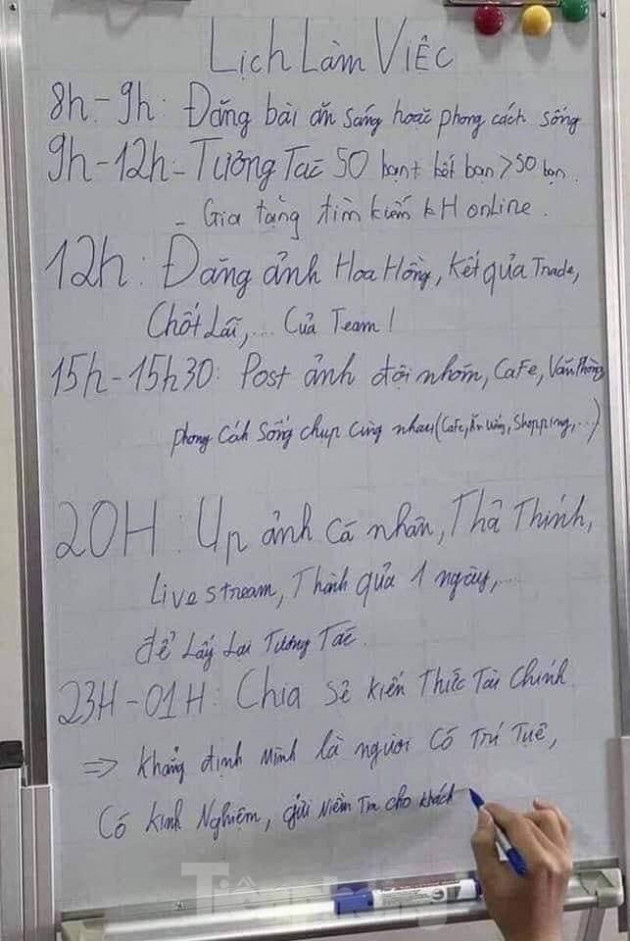 Lịch Làm Việc
8h - 9h: Đăng bài ăn sáng hoặc phong cách sống
9h - 12h - Tương Tác 50 bạn + kết bạn > 50 bạn.
- Gia tăng tìm kiếm KH online.
12h: Đăng ảnh Hoa Hồng, Kết quả Trade,
Chốt Lãi,... Của Team!
15h - 15h30: Post ảnh đội nhóm, CaFe, Văn Phòng
phong Cách Sống chụp Cùng nhau (Cafe, Ăn uống, Shopping,...)
20H: Up ảnh Cá nhân, Thả Thính,
Live stream, Thành quả 1 ngày,...
để Lấy Lại Tương Tác.
23H - 01H: Chia Sẻ Kiến Thức Tài Chính.
⇒ Khẳng định Mình là người Có Trí Tuệ,
Có Kinh Nghiệm, gửi Niềm Tin cho khách
Tiền Phong